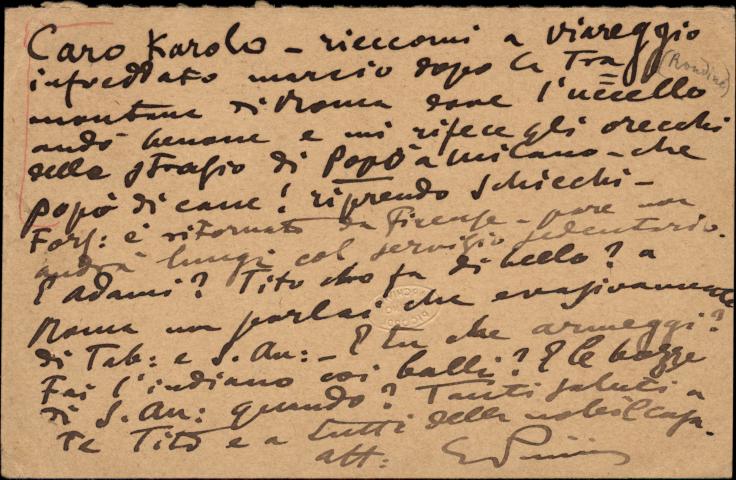 Caro Karolo – rieccomi a viareggio
infreddato marcio dopo la Tra
(Rondine)
montana di Roma dove l'uccello
andò benone e mi rifece gli orecchi
della strazio di Popò a milano – che
popò di cane! riprendo Schicchi –
Forz: è riformato da Firenze – pare non
andrà lungi col servizio sedentario.
E Adami? Tito che fa di bello? a
Roma non parlai che evasivamente
di Tab: e S. An: – E tu che armeggi?
Fai l'indiano coi balli? E le bozze
di S. An: quando? Tanti saluti a
Te Tito e a tutti della nobil casa.
aff: